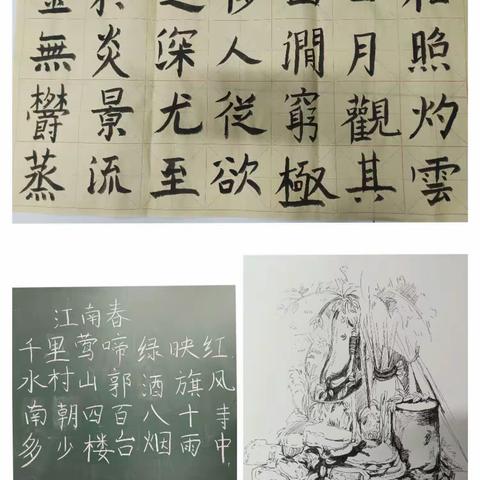 照灼雲
月觀其
澗窮極
人從欲
深尤至
炎景流
無鬱蒸
江南春
千里莺啼绿映红,
水村山郭酒旗风
南朝四百八十寺
多少楼台烟雨中,